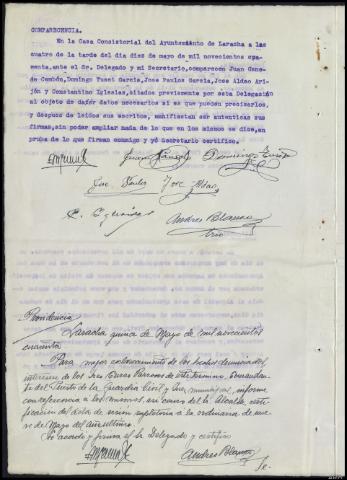 COMPARECENCIA.
En la Casa Consistorial del Ayuntamiento de Laracha a las
cuatro de la tarde del día diez de mayo de mil novecientos
ante el Sr. Delegado y mi Secretario, comparecen Juan
Cambón, Domingo Fuset García, Jose Paulos García, Jose Aldao Ari-
jón y Constantino Iglesias, citados previamente por esta Delegación
al objeto de dar datos necesarios si es que pueden precisarlos,
y despues de leidos sus escritos, manifiestan ser autenticas sus
firmas, sin poder ampliar nada de lo que en los mismos se dice, en
prueba de lo que firman conmigo y yó Secretario certifico.
Juan
Jose Paulos Jose Aldao
C. Iglesias Andres Blanco
Providencia
Laracha quince de Mayo de mil novecientos
cuarenta
Para mejor esclarecimiento de los hechos
de los Sres Curas Párrocos de este término, Comandan-
te del Puesto de la Guardia Civil y informe
con referencia a los mismos, asi como del Sr. Alcalde, certi-
ficación del acta de sesion supletoria a la ordinaria de
de Mayo del año último.
Lo acordó y firma el Sr. Delegado y certifico
Andres Blanco